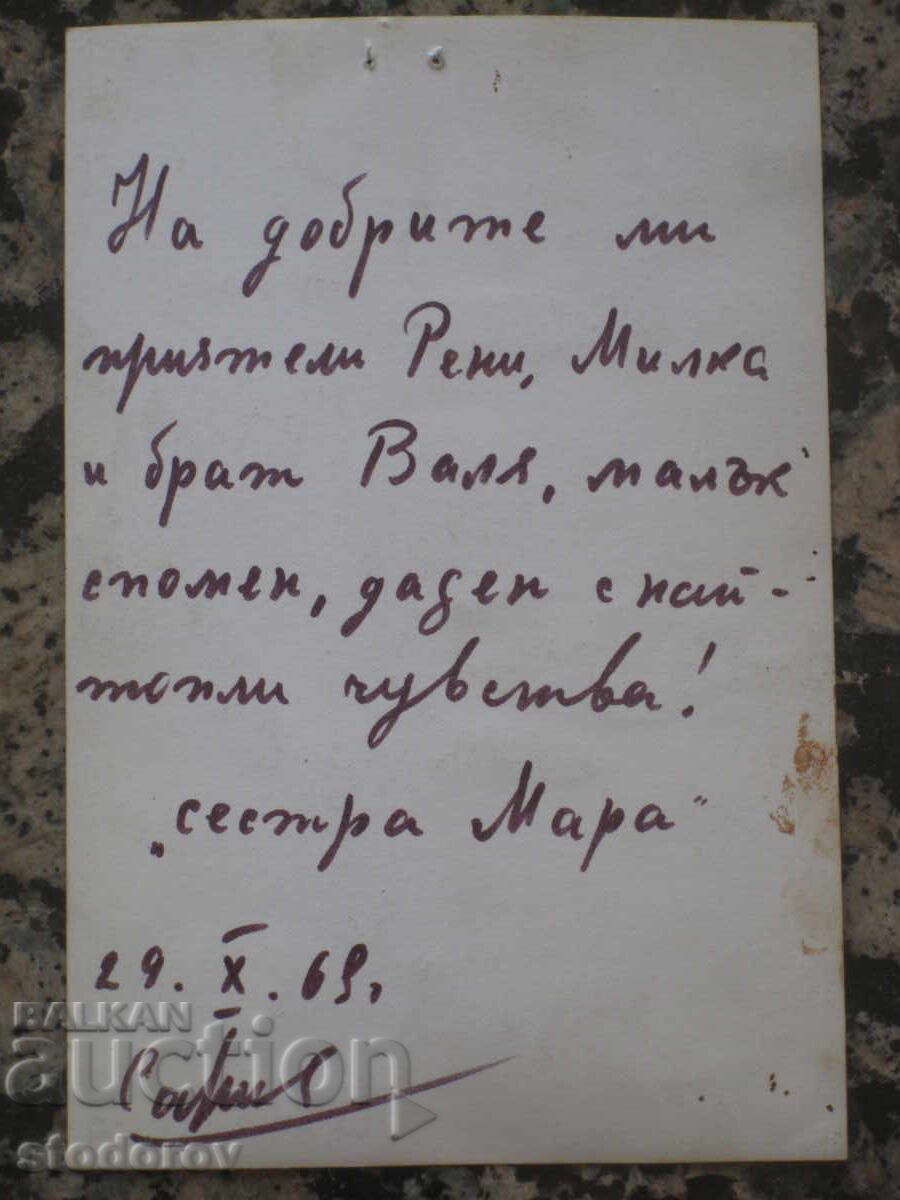 На добрите ми
приятели Рени, Милка
и брат Валя, малък
спомен, даден с най-
топли чувства!
„сестра Мара"
29. X. 69.
BALKAN
auction
stodorov